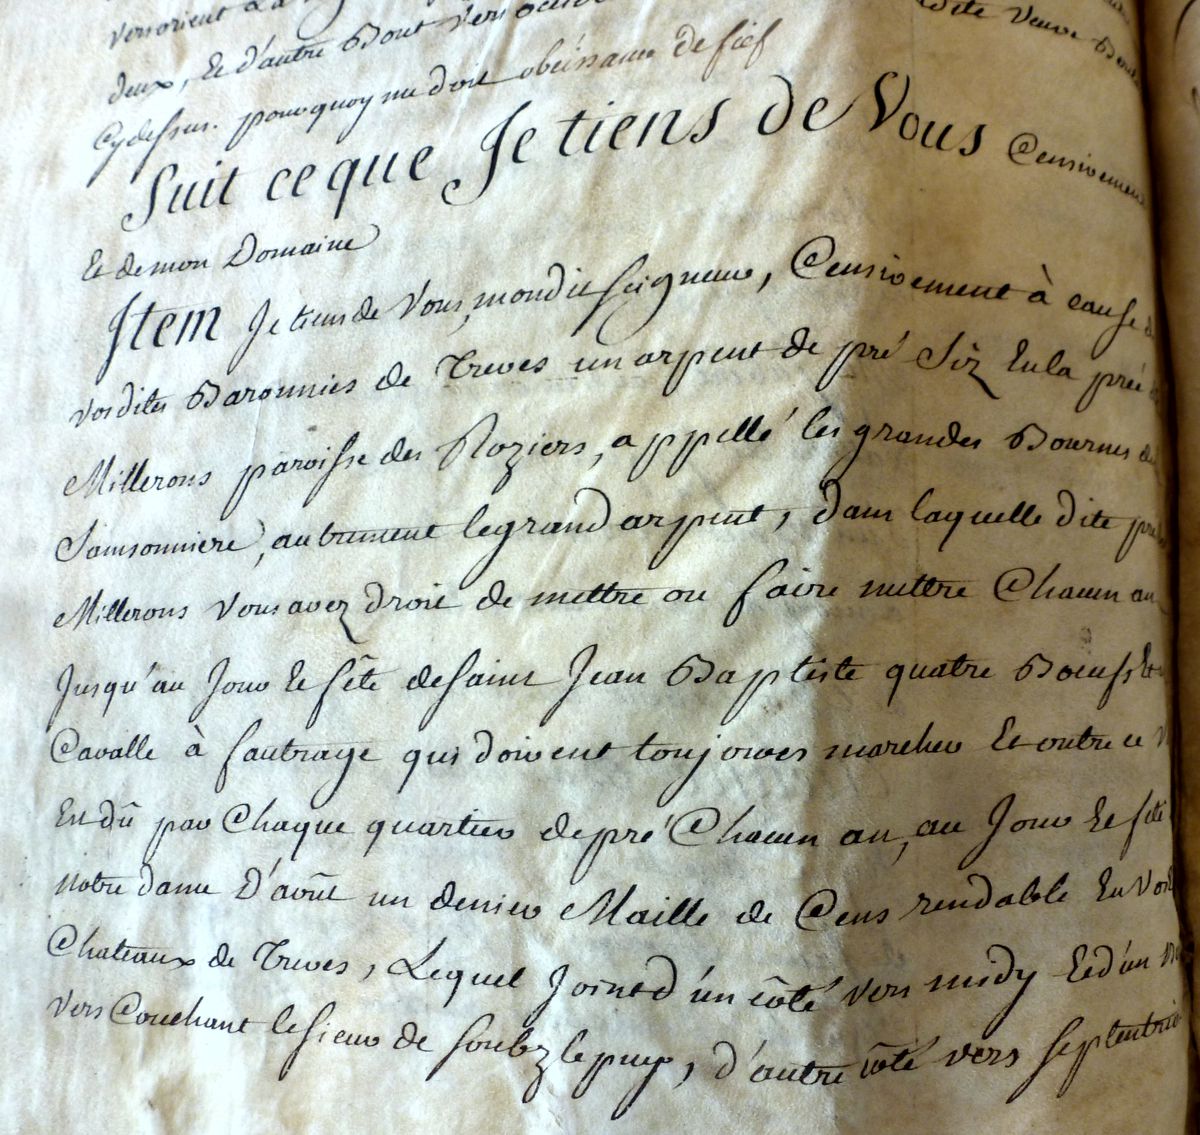 vers orient
deux, Et d'autre Bout vers dite Veuve
Cydessus. pourquoy ne doit obéissance de fief
Suit ce que Je tiens de Vous Censivement
Et de mon Domaine
Item Je tiens de Vous, mondit seigneur, Censivement à cause
vosdites Baronnies de Treves un arpent de pré Siz En la prée
Millerons paroisse des Roziers, appellé les grandes Bournes
Samsonniere, autrement le grand arpent, dans laquelle dite
Millerons Vous avez droit de mettre ou faire mettre Chacun an
Jusqu'au Jour Et fête de saint Jean Baptiste quatre Boeufs Et
Cavalle à fautrage qui doivent toujours marcher Et outre ce
Est dû par Chaque quartier de pré Chacun an, au Jour Et fête
notre dame D'août un denier Maille de Cens rendable En
Chateaux de Treves, Lequel Joint d'un côté vers midy Et d'un
vers Couchant le sieur de soubz le puy, d'autre côté vers septentrion